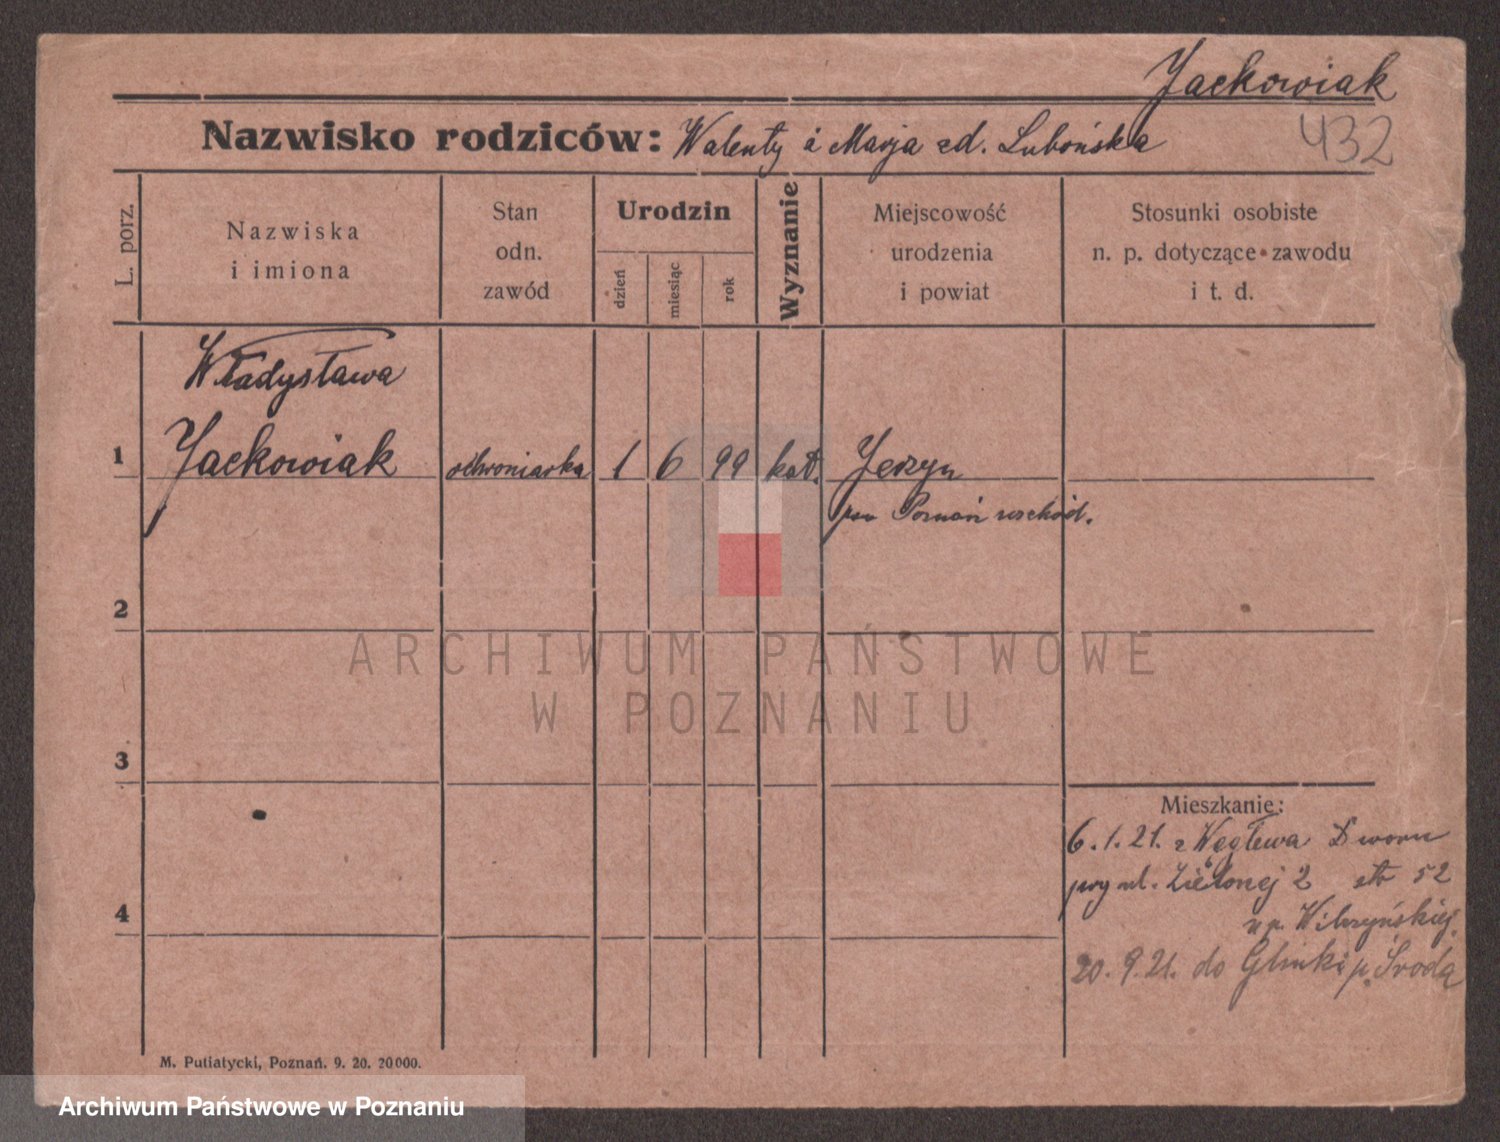 Jackowiak
432
Nazwisko rodziców: Walenty i Marja zd. Lubońska
L. porz.
Nazwiska
i imiona
Stan
odn.
zawód
Urodzin
dzień
miesiąc
rok
Wyznanie
Miejscowość
urodzenia
i powiat
Stosunki osobiste
n. p. dotyczące zawodu
i t. d.
Władysława
1 Jackowiak ochroniarka 1 6 99 kat. Jerzyn
pow Poznań wschód.
2
ARCHIWUM PAŃSTWOWE
W POZNANIU
3
Mieszkanie:
6.1.21. z Węglewa Dworu
przy ul. Zielonej 2 str 52
u p. Wilczyńskiej.
4
20.9.21. do Glinki p. Środa
M. Putiatycki, Poznań. 9. 20. 20000.
Archiwum Państwowe w Poznaniu